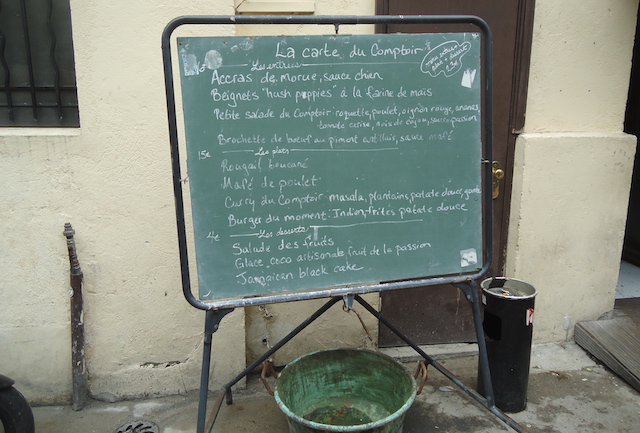 La carte du Comptoir
Les entrées
Accras de morue, sauce chien
Beignets "hush puppies" à la farine de maïs
Petite salade du Comptoir roquette, poulet, oignon rouge, ananas,
tomate cerise, noix de cajou, sauce passion
Brochette de boeuf au piment antillais, sauce mafé
15e Les plats
Rougail boucané
Mafé de poulet
Curry du Comptoir masala, plantain, patate douce,
Burger du moment: Indien, frites patate douce
4e Les desserts
Salade des fruits
Glace coco artisanale, fruit de la passion
Jamaican black cake